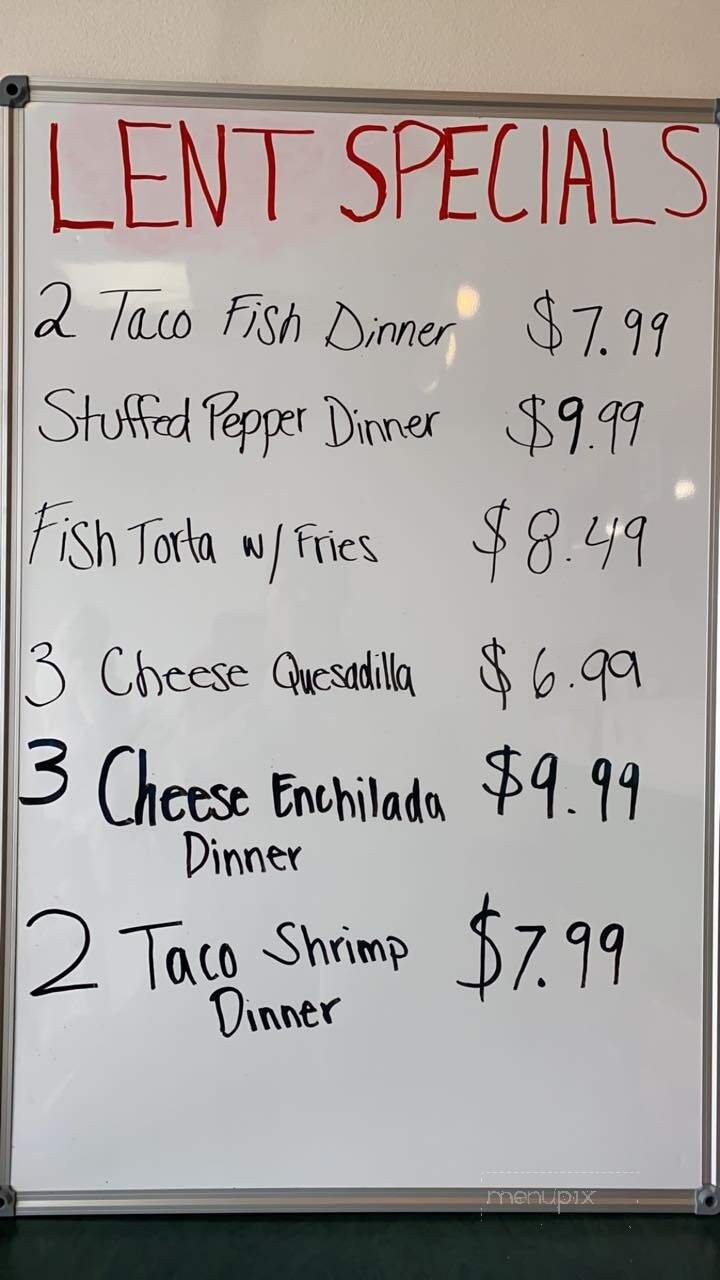 LENT SPECIALS
2 Taco Fish Dinner $7.99
Stuffed Pepper Dinner $9.99
Fish Torta w/ Fries $8.49
3 Cheese Quesadilla $6.99
3 Cheese Enchilada $9.99
Dinner
2 Taco Shrimp $7.99
Dinner
menupix